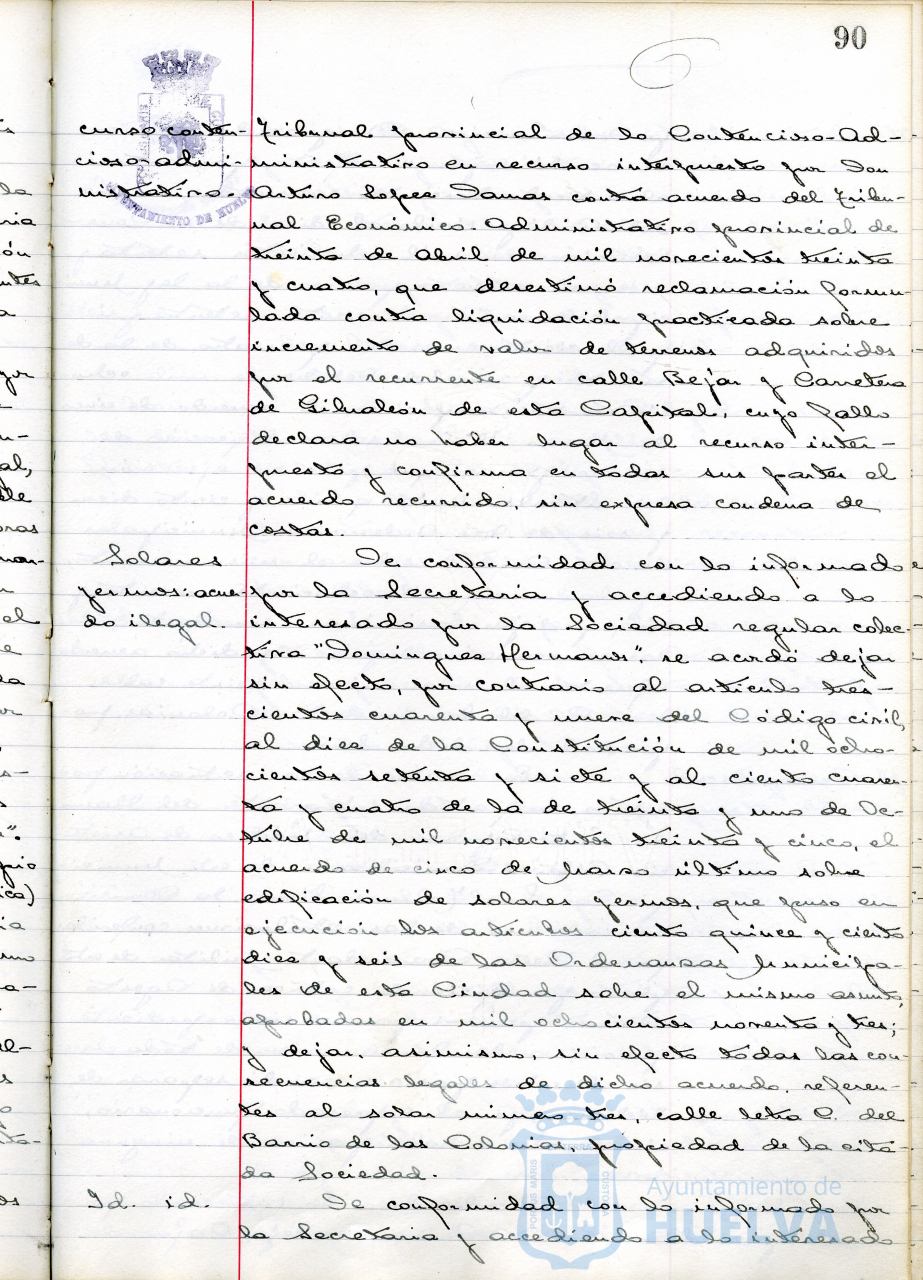 90
curso conten-
cioso-admi-
nistrativo.-
Tribunal provincial de lo Contencioso-Ad-
ministrativo en recurso interpuesto por Don
Arturo Lopez Damas contra acuerdo del Tribu-
nal Económico-Administrativo provincial de
treinta de Abril de mil novecientos treinta
y cuatro, que desestimó reclamación formu-
lada contra liquidación practicada sobre
incremento de valor de terrenos adquiridos
por el recurrente en calle Bejar y Carretera
de Gibraleón de esta Capital, cuyo fallo
declara no haber lugar al recurso inter-
puesto y confirma en todas sus partes el
acuerdo recurrido, sin expresa condena de
costas.
Solares
yermos: acuer-
do ilegal.
De conformidad con lo informado
por la Secretaria y accediendo a lo
interesado por la Sociedad regular colec-
tiva "Dominguez Hermanos", se acordó dejar
sin efecto, por contrario al articulo tres-
cientos cuarenta y nueve del Código civil,
al diez de la Constitución de mil ocho-
cientos setenta y siete y al ciento cuaren-
ta y cuatro de la de treinta y uno de Oc-
tubre de mil novecientos treinta y cinco, el
acuerdo de cinco de Marzo último sobre
edificación de solares yermos, que puso en
ejecución los articulos ciento quince y ciento
diez y seis de las Ordenanzas Municipa-
les de esta Ciudad sobre el mismo asunto,
aprobadas en mil ochocientos noventa y tres;
y dejar, asimismo, sin efecto todas las con
secuencias legales de dicho acuerdo, referen-
tes al solar número tres, calle letra C. del
Barrio de las Colonias, propiedad de la cita-
da Sociedad.
Id. id.
De conformidad con lo informado por
la Secretaria y accediendo a lo interesado
Ayuntamiento de
HUELVA